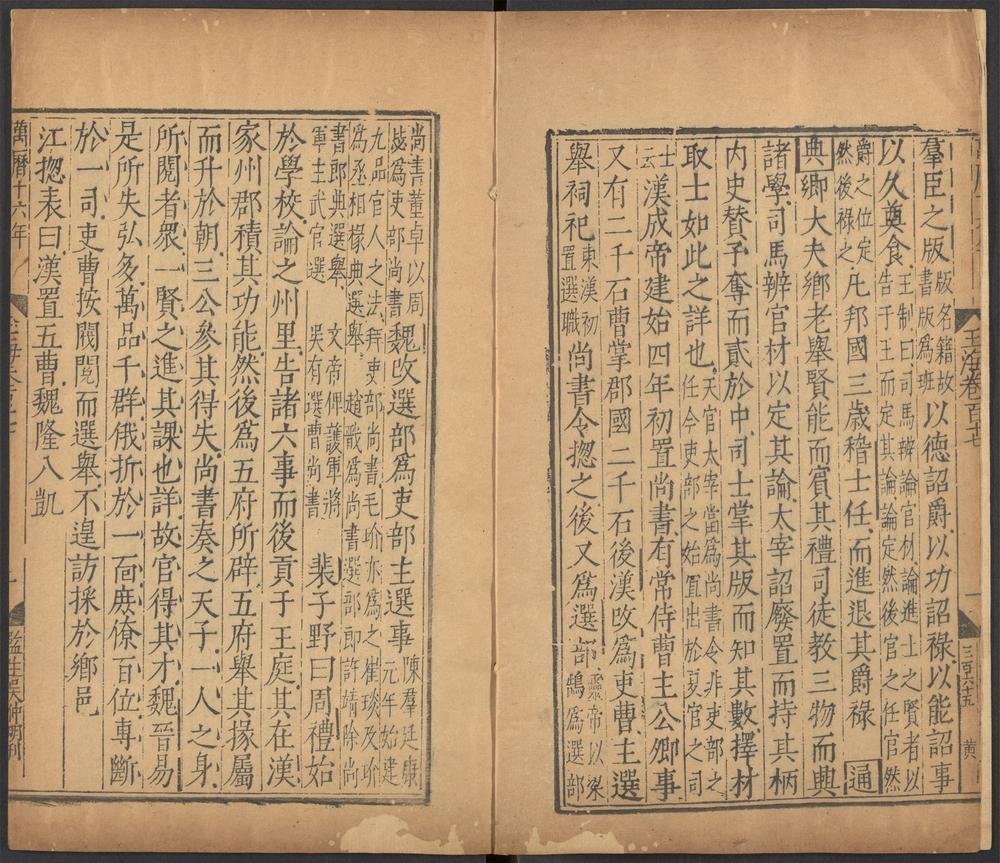 玉海卷百七
三百六十五
黃
羣臣之版版名籍故書版爲班以德詔爵以功詔祿以能詔事
以久奠食王制曰司馬辨論官材論進士之賢者以告于王而定其論論定然後官之任官然
後爵之位定然後祿之凡邦國三歲稽士任而進退其爵祿通
典卿大夫鄉老舉賢能而賓其禮司徒教三物而興
諸學司馬辨官材以定其論太宰詔廢置而持其柄
內史贊予奪而貳於中司士掌其版而知其數擇材
取士如此之詳也天官太宰當爲尚書令非吏部之任今吏部之始宜出於夏官之司
士云漢成帝建始四年初置尚書有常侍曹主公卿事
又有二千石曹掌郡國二千石後漢改爲吏曹主選
舉祠祀東漢初置選職尚書令揔之後又爲選部靈帝以梁鵠爲選部
尚書董卓以周毖爲吏部尚書魏改選部爲吏部主選事陳羣延康元年始建
九品官人之法拜吏部尚書毛玠亦爲之崔琰及玠爲丞相椽典選舉趙戩爲尚書選部郎許靖除尚
書郎典選舉文帝俾護軍將軍主武官選吳有選曹尚書裴子野曰周禮始
於學校論之州里告諸六事而後貢于王庭其在漢
家州郡積其功能然後爲五府所辟五府舉其掾屬
而升於朝三公參其得失尚書奏之天子一人之身
所閱者衆一賢之進其課也詳故官得其才魏晉易
是所失弘多萬品千群俄折於一面庶僚百位專斷
於一司吏曹按閥閱而選舉不遑訪採於鄉邑
江揔表曰漢置五曹魏隆八凱
萬曆十六年
一
監生吳仲明刊